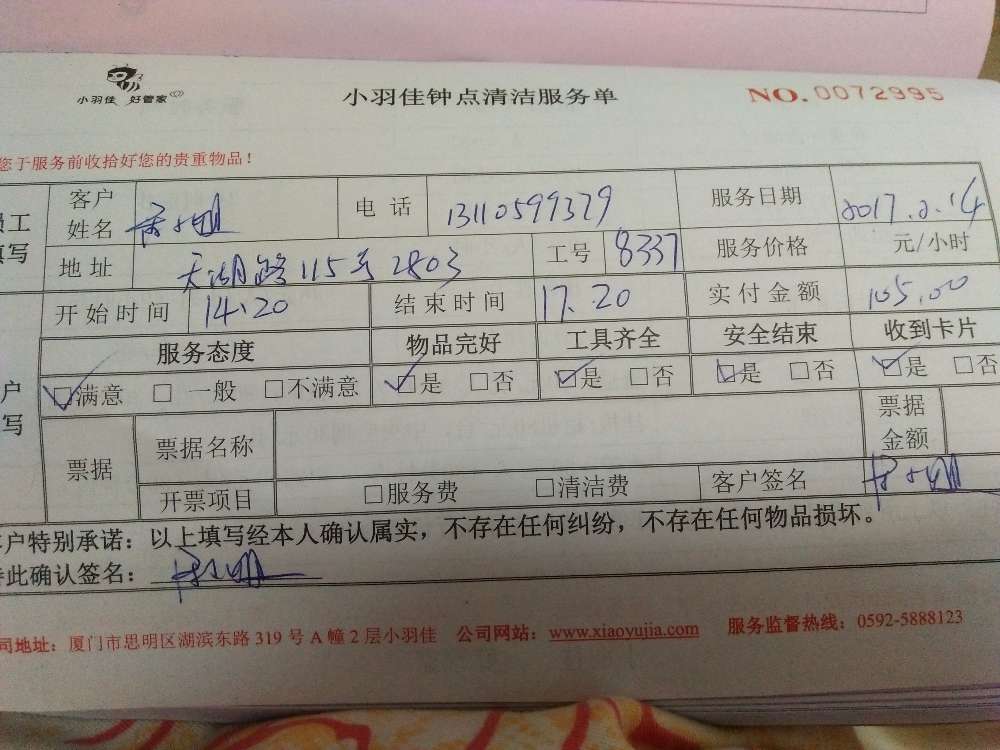 小羽佳 好管家
小羽佳钟点清洁服务单
NO.0072995
您于服务前收拾好您的贵重物品！
员工 填写
客户姓名 电话 13110599379 服务日期 2017.2.14
地址 天湖路115号2803 工号 8337 服务价格 元/小时
开始时间 14.20 结束时间 17.20 实付金额 105.00
服务态度 物品完好 工具齐全 安全结束 收到卡片
户 写
☑满意 □一般 □不满意 ☑是 □否 ☑是 □否 ☑是 □否 ☑是 □否
票据 票据名称 票据金额
开票项目 □服务费 □清洁费 客户签名
客户特别承诺：以上填写经本人确认属实，不存在任何纠纷，不存在任何物品损坏。
特此确认签名：
司地址：厦门市思明区湖滨东路319号A幢2层小羽佳 公司网站：www.xiaoyujia.com 服务监督热线：0592-5888123